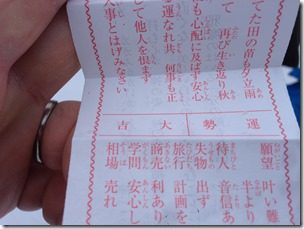 てた田の苗も夕立雨
て 再び生き返り秋
も心配に及ばず安心
て。
運なれ共 何事も正
して他人を恨まず
事とはげみなさい
運勢 大吉
願望 叶い難
半より
待人 音信あ
失物 出ず
旅行 計画を
商売 利あり
学問 安心し
相場 売れ